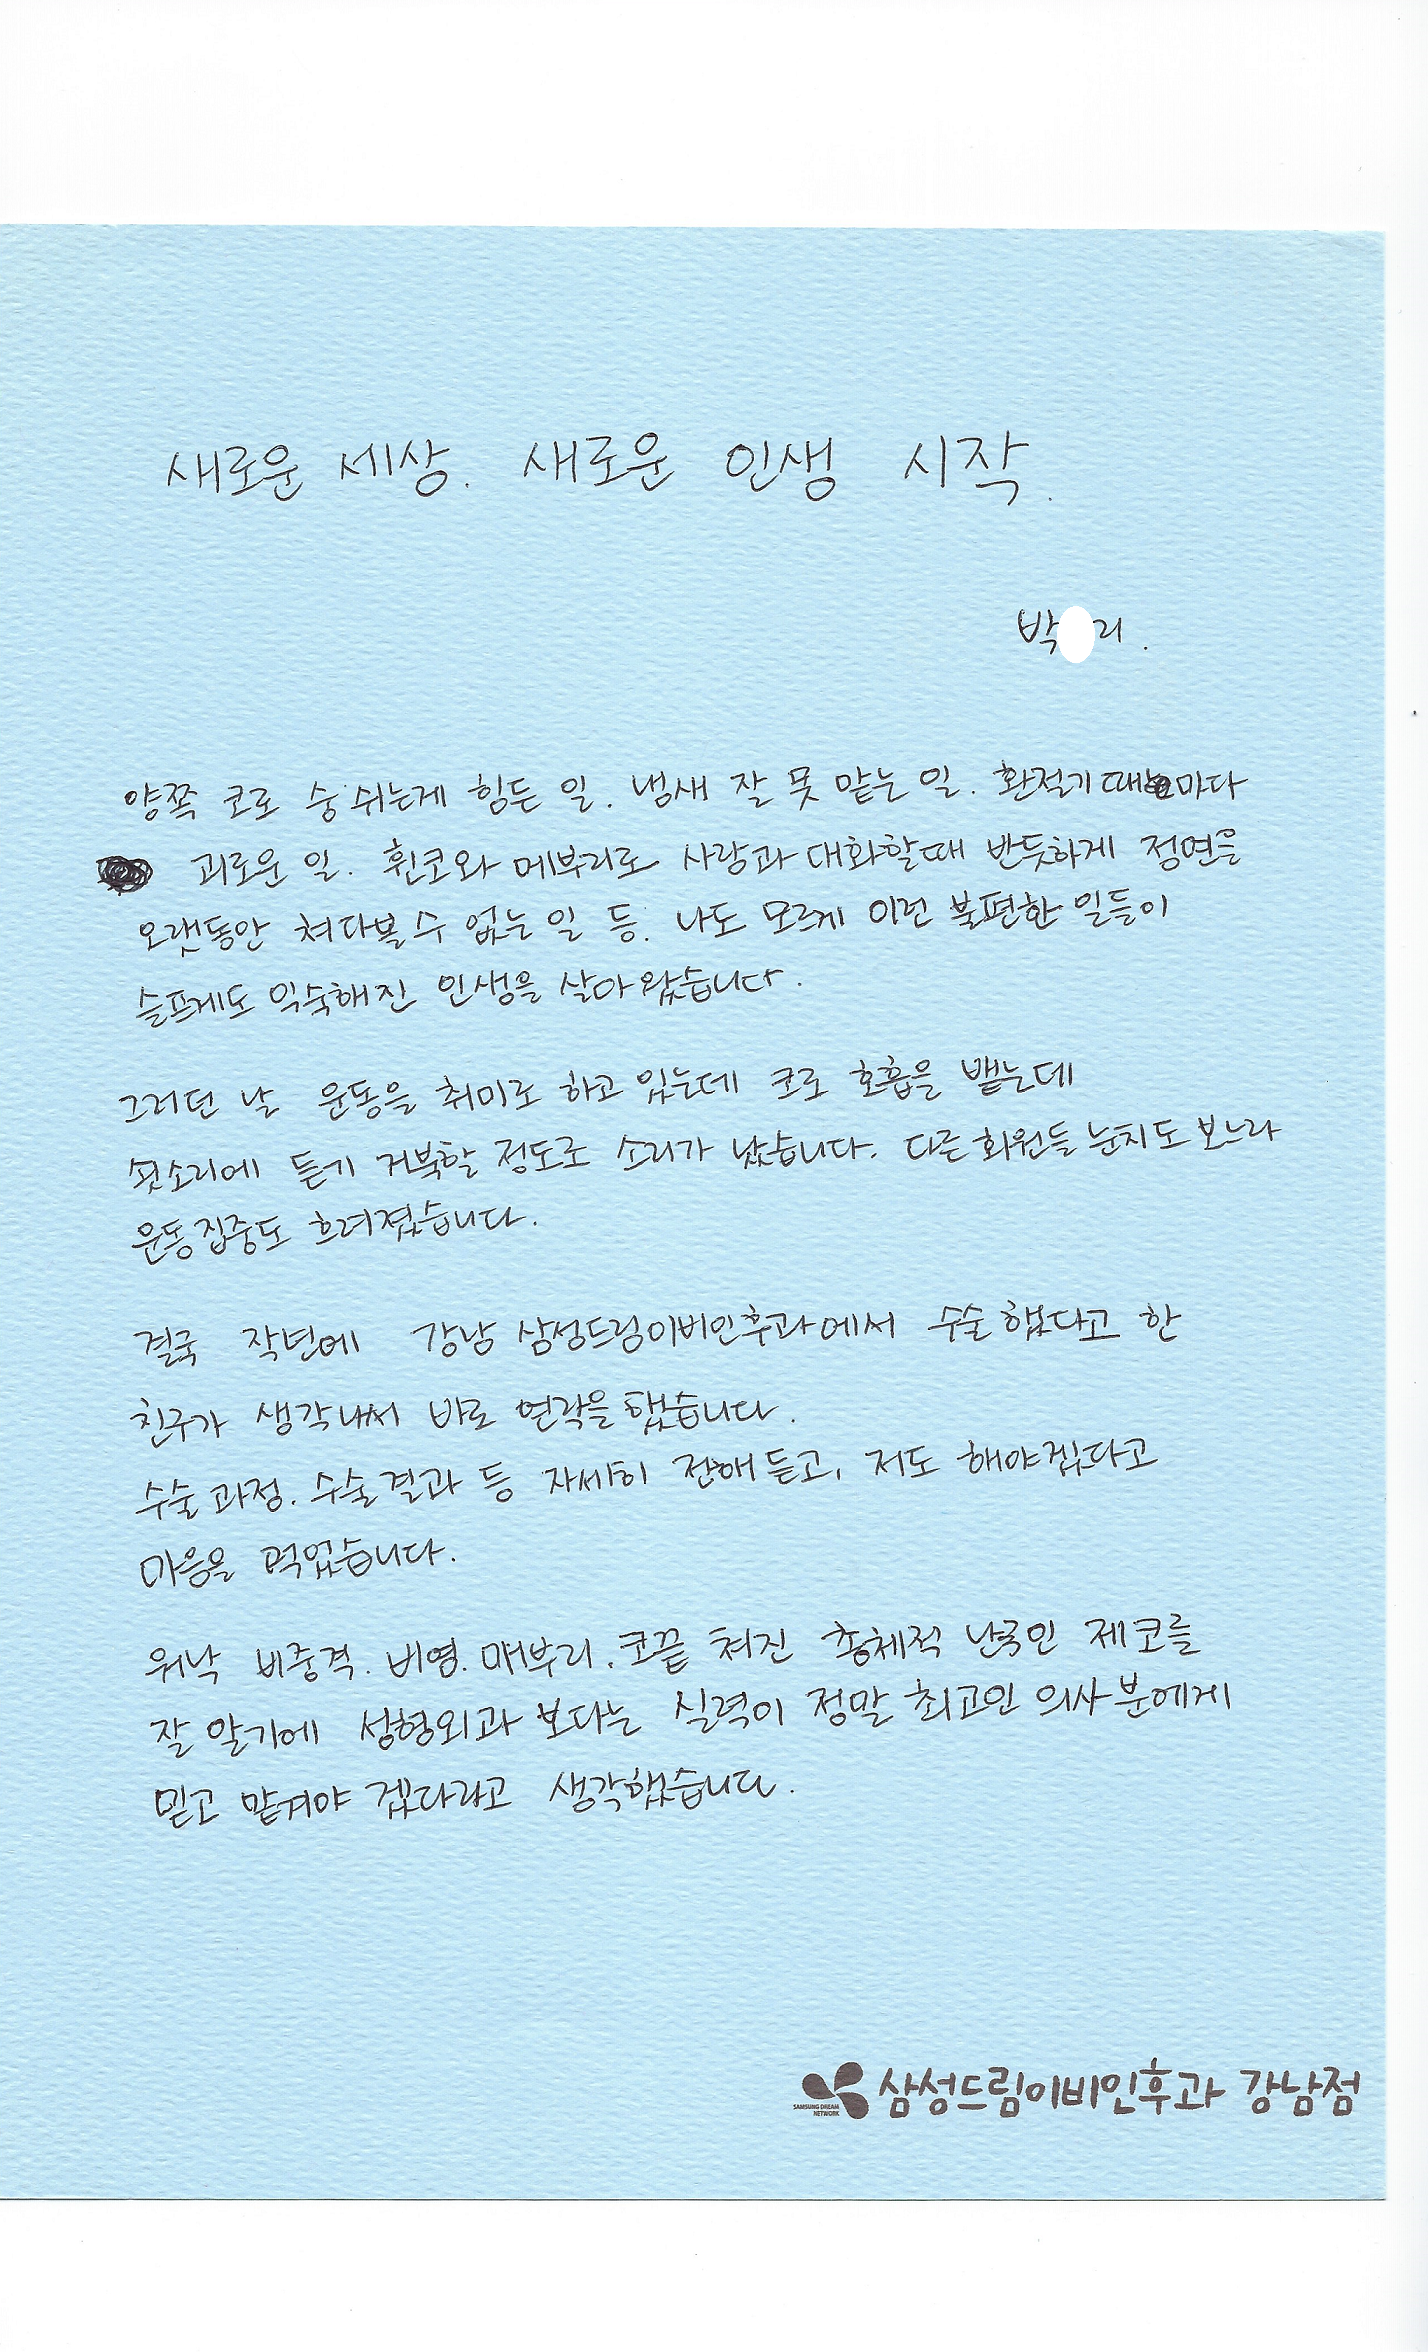 새로운 세상. 새로운 인생 시작.
박 리.
양쪽 코로 숨 쉬는게 힘든 일. 냄새 잘 못 맡는 일. 환절기 때마다
괴로운 일. 휜코와 메부리로 사람과 대화할때 반듯하게 정면을
오랫동안 쳐다볼 수 없는 일 등. 나도 모르게 이런 불편한 일들이
슬프게도 익숙해진 인생을 살아왔습니다.
그러던 날 운동을 취미로 하고 있는데 코로 호흡을 뱉는데
쇳소리에 듣기 거북할 정도로 소리가 났습니다. 다른 회원들 눈치도 보느라
운동집중도 흐려졌습니다.
결국 작년에 강남 삼성드림이비인후과에서 수술했다고 한
친구가 생각나서 바로 연락을 했습니다.
수술 과정. 수술 결과 등 자세히 전해 듣고, 저도 해야겠다고
마음을 먹었습니다.
워낙 비중격. 비염. 매부리. 코끝 쳐진 총체적 난국인 제 코를
잘 알기에 성형외과 보다는 실력이 정말 최고인 의사분에게
믿고 맡겨야 겠다라고 생각했습니다.
삼성드림이비인후과 강남점
SAMSUNG DREAM
NETWORK